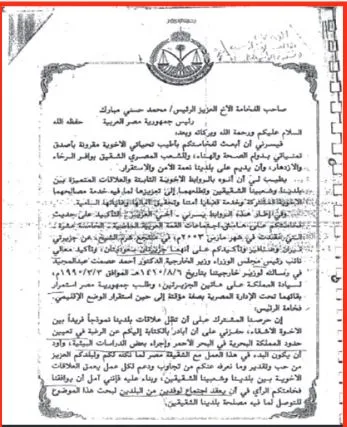 صاحب الفخامة الأخ العزيز الرئيس/ محمد حسني مبارك
رئيس جمهورية مصر العربية حفظه الله
السلام عليكم ورحمة الله وبركاته وبعد،
فيسرني أن أبعث لفخامتكم بأطيب تحياتي الأخوية مقرونة بأصدق
تمنياتي بدوام الصحة والهناء، وللشعب المصري الشقيق بوافر الرخاء
والازدهار، وأن يديم على بلدينا نعمة الأمن والاستقرار.
يطيب لي أن أنوه بالروابط الأخوية الثابتة والعلاقات المتميزة بين
بلدينا وشعبينا الشقيقين وتطلعهما إلى تعزيزها لما فيه خدمة مصالحهما
المشتركة وخدمة قضايا أمتنا وتحقيق
وفي إطار هذه الروابط يسرني - أخي العزيز - التأكيد على حديث
على هامش اجتماعات القمة العربية الخامسة عشرة
في شهر مارس ٢٠٠٣م، في شرم الشيخ، عن جزيرتي
تيران وصنافير وتأكيدكم على أنهما جزيرتان سعوديتان، وتأكيد معالي
نائب رئيس مجلس الوزراء وزير الخارجية الدكتور أحمد عصمت عبدالمجيد
في رسالته لوزير خارجيتنا بتاريخ ١٤١٠/٨/٦هـ الموافق ١٩٩٠/٣/٣م،
لسيادة المملكة على هاتين الجزيرتين، وطلب جمهورية مصر استمرار
بقائهما تحت الإدارة المصرية بصفة مؤقتة إلى حين استقرار الوضع الإقليمي.
فخامة الرئيس:
إن حرصنا المشترك على أن تظل علاقات بلدينا نموذجاً فريداً بين
الأخوة الأشقاء، حفزني على أن أبادر بالكتابة إليكم عن الرغبة في تعيين
حدود المملكة البحرية في البحر الأحمر وإجراء بعض الدراسات البيئية، وأود
أن يكون البدء في هذا العمل مع الشقيقة مصر لما نكنه لكم ولبلدكم العزيز
من حب وتقدير وما نعرفه عنكم من تجاوب ودعم لكل عمل ينمي العلاقات
الأخوية بين بلدينا وشعبينا الشقيقين، وبناء عليه فإنني آمل أن يوافقنا
فخامتكم الرأي في أن يعقد اجتماع لوفدين من البلدين لبحث هذا الموضوع
للتوصل لما فيه مصلحة بلدينا الشقيقين.